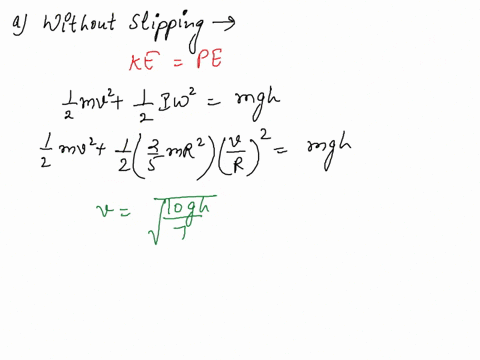 a) Without Slipping →
KE = PE
1/2 mv² + 1/2 Iω² = mgh
1/2 mv² + 1/2 (2/5 mR²) (v/R)² = mgh
v = √(10gh/7)